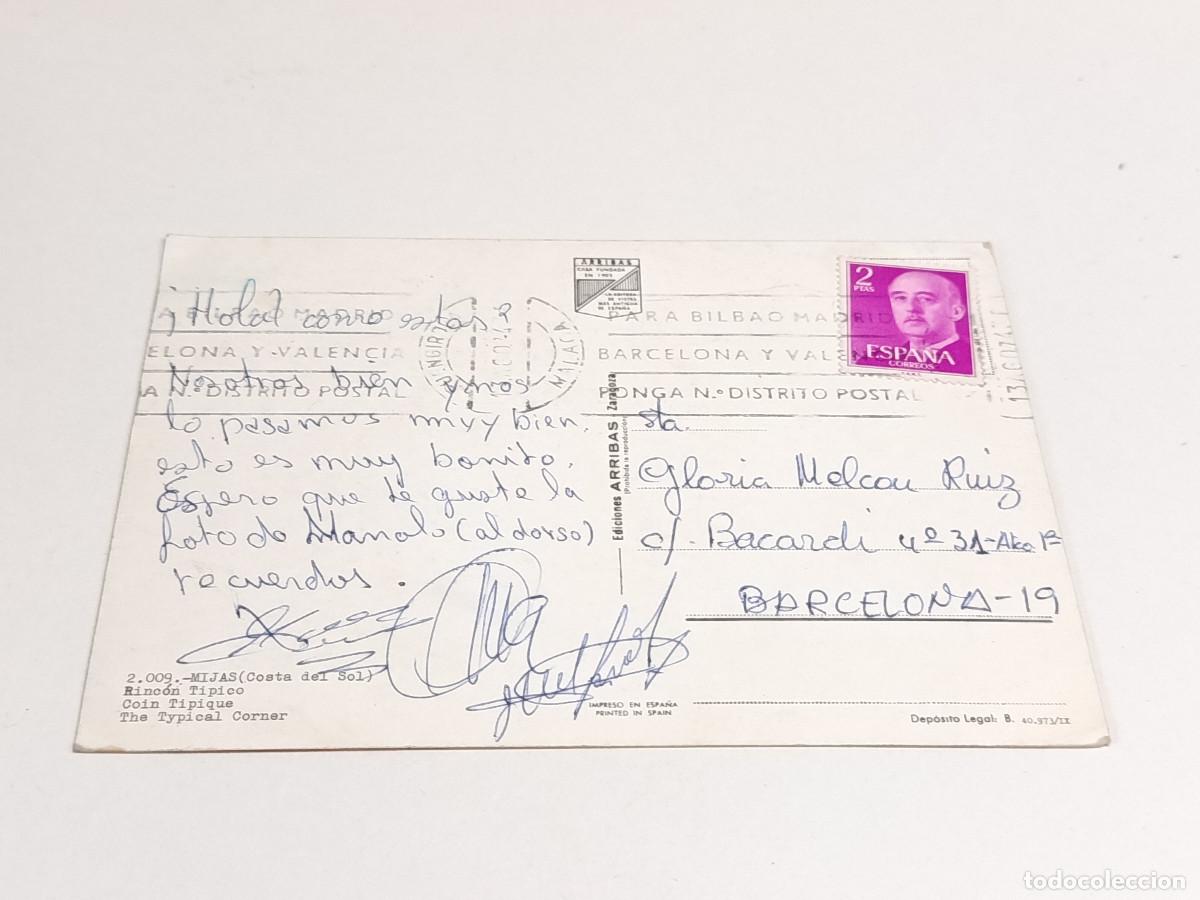 ¡Hola! como estas?
Nosotros bien y nos
lo pasamos muy bien.
esto es muy bonito.
Espero que te guste la
foto do Manolo (al dorso)
recuerdos.
2.009.-MIJAS (Costa del Sol)
Rincón Tipico
Coin Tipique
The Typical Corner
ARRIBAS
CASA FUNDADA
EN 1905
LA EDITORA
DE VISTAS
MAS ANTIGUA
DE ESPAÑA
Ediciones ARRIBAS Zaragoza
(Prohibida la reproducción)
IMPRESO EN ESPAÑA
PRINTED IN SPAIN
A BILBAO MADRID
ELONA Y VALENCIA
A N.º DISTRITO POSTAL
MALAGA
PARA BILBAO MADRID
BARCELONA Y VALEN
PONGA N.º DISTRITO POSTAL
2
PTAS
ESPAÑA
CORREOS
sta.
Gloria Melcou Ruiz
c/. Bacardi nº 31-Atco 1ª
BARCELONA-19
Depósito Legal: B. 40.973/IX
todocoleccion